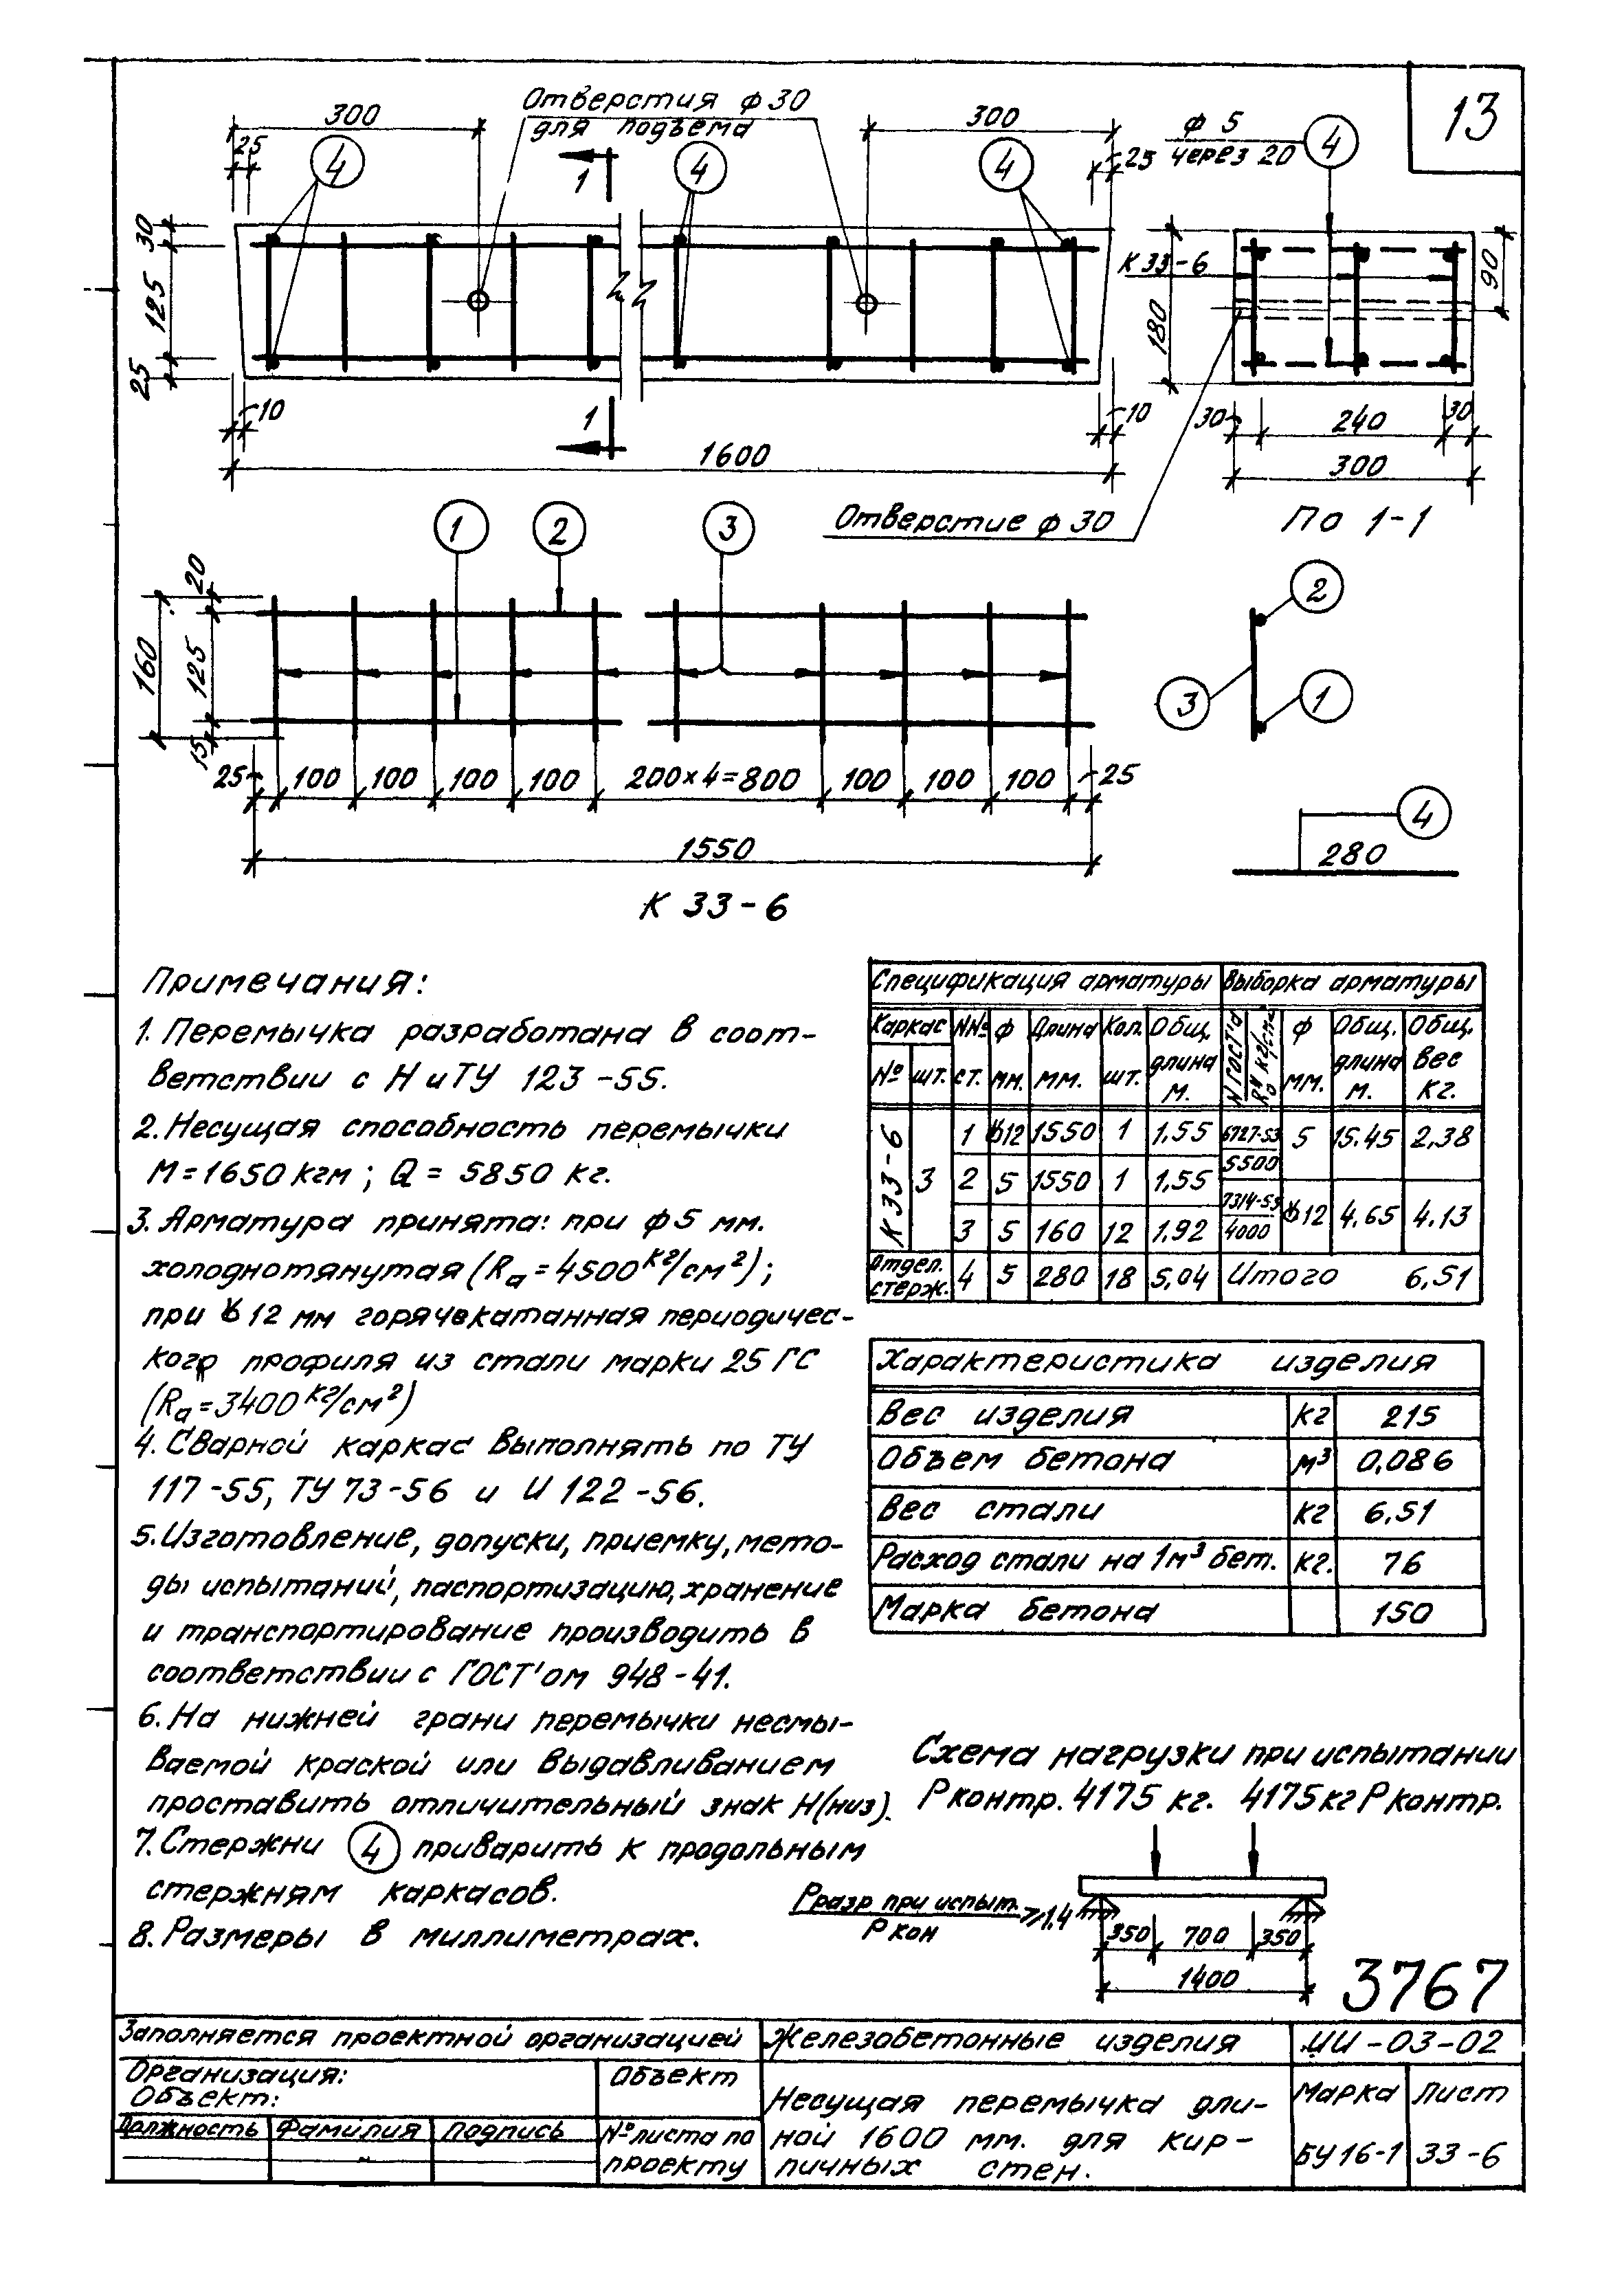 13
Отверстия ф 30
для подъема
300
300
25
25
4
4
4
1
ф 5
через 20
4
30
125
25
К 33-6
180
90
10
1
10
1600
30
240
30
300
Отверстие ф 30
По 1-1
1
2
3
20
160
125
15
2
3
1
25
100
100
100
100
200×4=800
100
100
100
25
1550
4
280
К 33-6
Примечания:
1. Перемычка разработана в соот-
ветствии с Н и ТУ 123-55.
2. Несущая способность перемычки
М=1650 кгм; Q = 5850 кг.
3. Арматура принята: при ф 5 мм.
холоднотянутая (Rа=4500 кг/см²);
при 12 мм горячекатанная периодичес-
кого профиля из стали марки 25 ГС
(Rа=3400 кг/см²)
4. Сварной каркас выполнять по ТУ
117-55, ТУ 73-56 и И 122-56.
5. Изготовление, допуски, приемку, мето-
ды испытаний, паспортизацию, хранение
и транспортирование производить в
соответствии с ГОСТ'ом 948-41.
6. На нижней грани перемычки несмы-
ваемой краской или выдавливанием
проставить отличительный знак Н(низ).
7. Стержни 4 приварить к продольным
стержням каркасов.
8. Размеры в миллиметрах.
Спецификация арматуры Выборка арматуры
Каркас №№ ф Длина Кол. Общ. N ГОСТ'а ф Общ. Общ.
№ шт. ст. мм. мм. шт. длина м. мм. длина м. вес кг.
К 33-6 3 1 12 1550 1 1,55 6727-53 5 15.45 2,38
5500
2 5 1550 1 1,55
7314-55 12 4,65 4,13
4000
3 5 160 12 1,92
Отдел. стерж. 4 5 280 18 5,04 Итого 6,51
Характеристика изделия
Вес изделия кг 215
Объем бетона м³ 0,086
Вес стали кг 6,51
Расход стали на 1м³ бет. кг. 76
Марка бетона 150
Схема нагрузки при испытании
Р контр. 4175 кг. 4175 кг Р контр.
Р разр при испыт.
Р кон
≥1,4
350 700 350
1400
3767
Заполняется проектной организацией
Организация:
Объект:
Объект
Должность Фамилия Подпись
№ листа по
проекту
Железобетонные изделия
Несущая перемычка дли-
ной 1600 мм. для кир-
пичных стен.
ИИ-03-02
Марка Лист
БУ 16-1 33-6